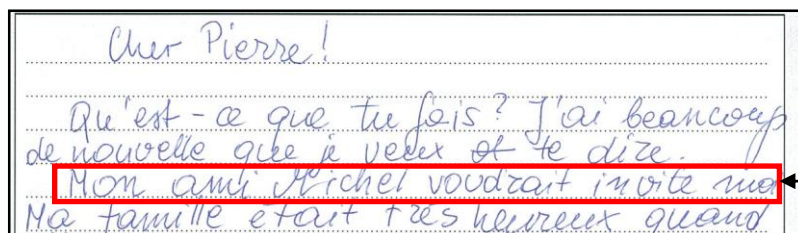 Cher Pierre!
Qu'est-ce que tu fais? J'ai beaucoup
de nouvelle que je veux te dire.
Mon ami Michel voudrait invite ma
Ma famille était très heureux quand